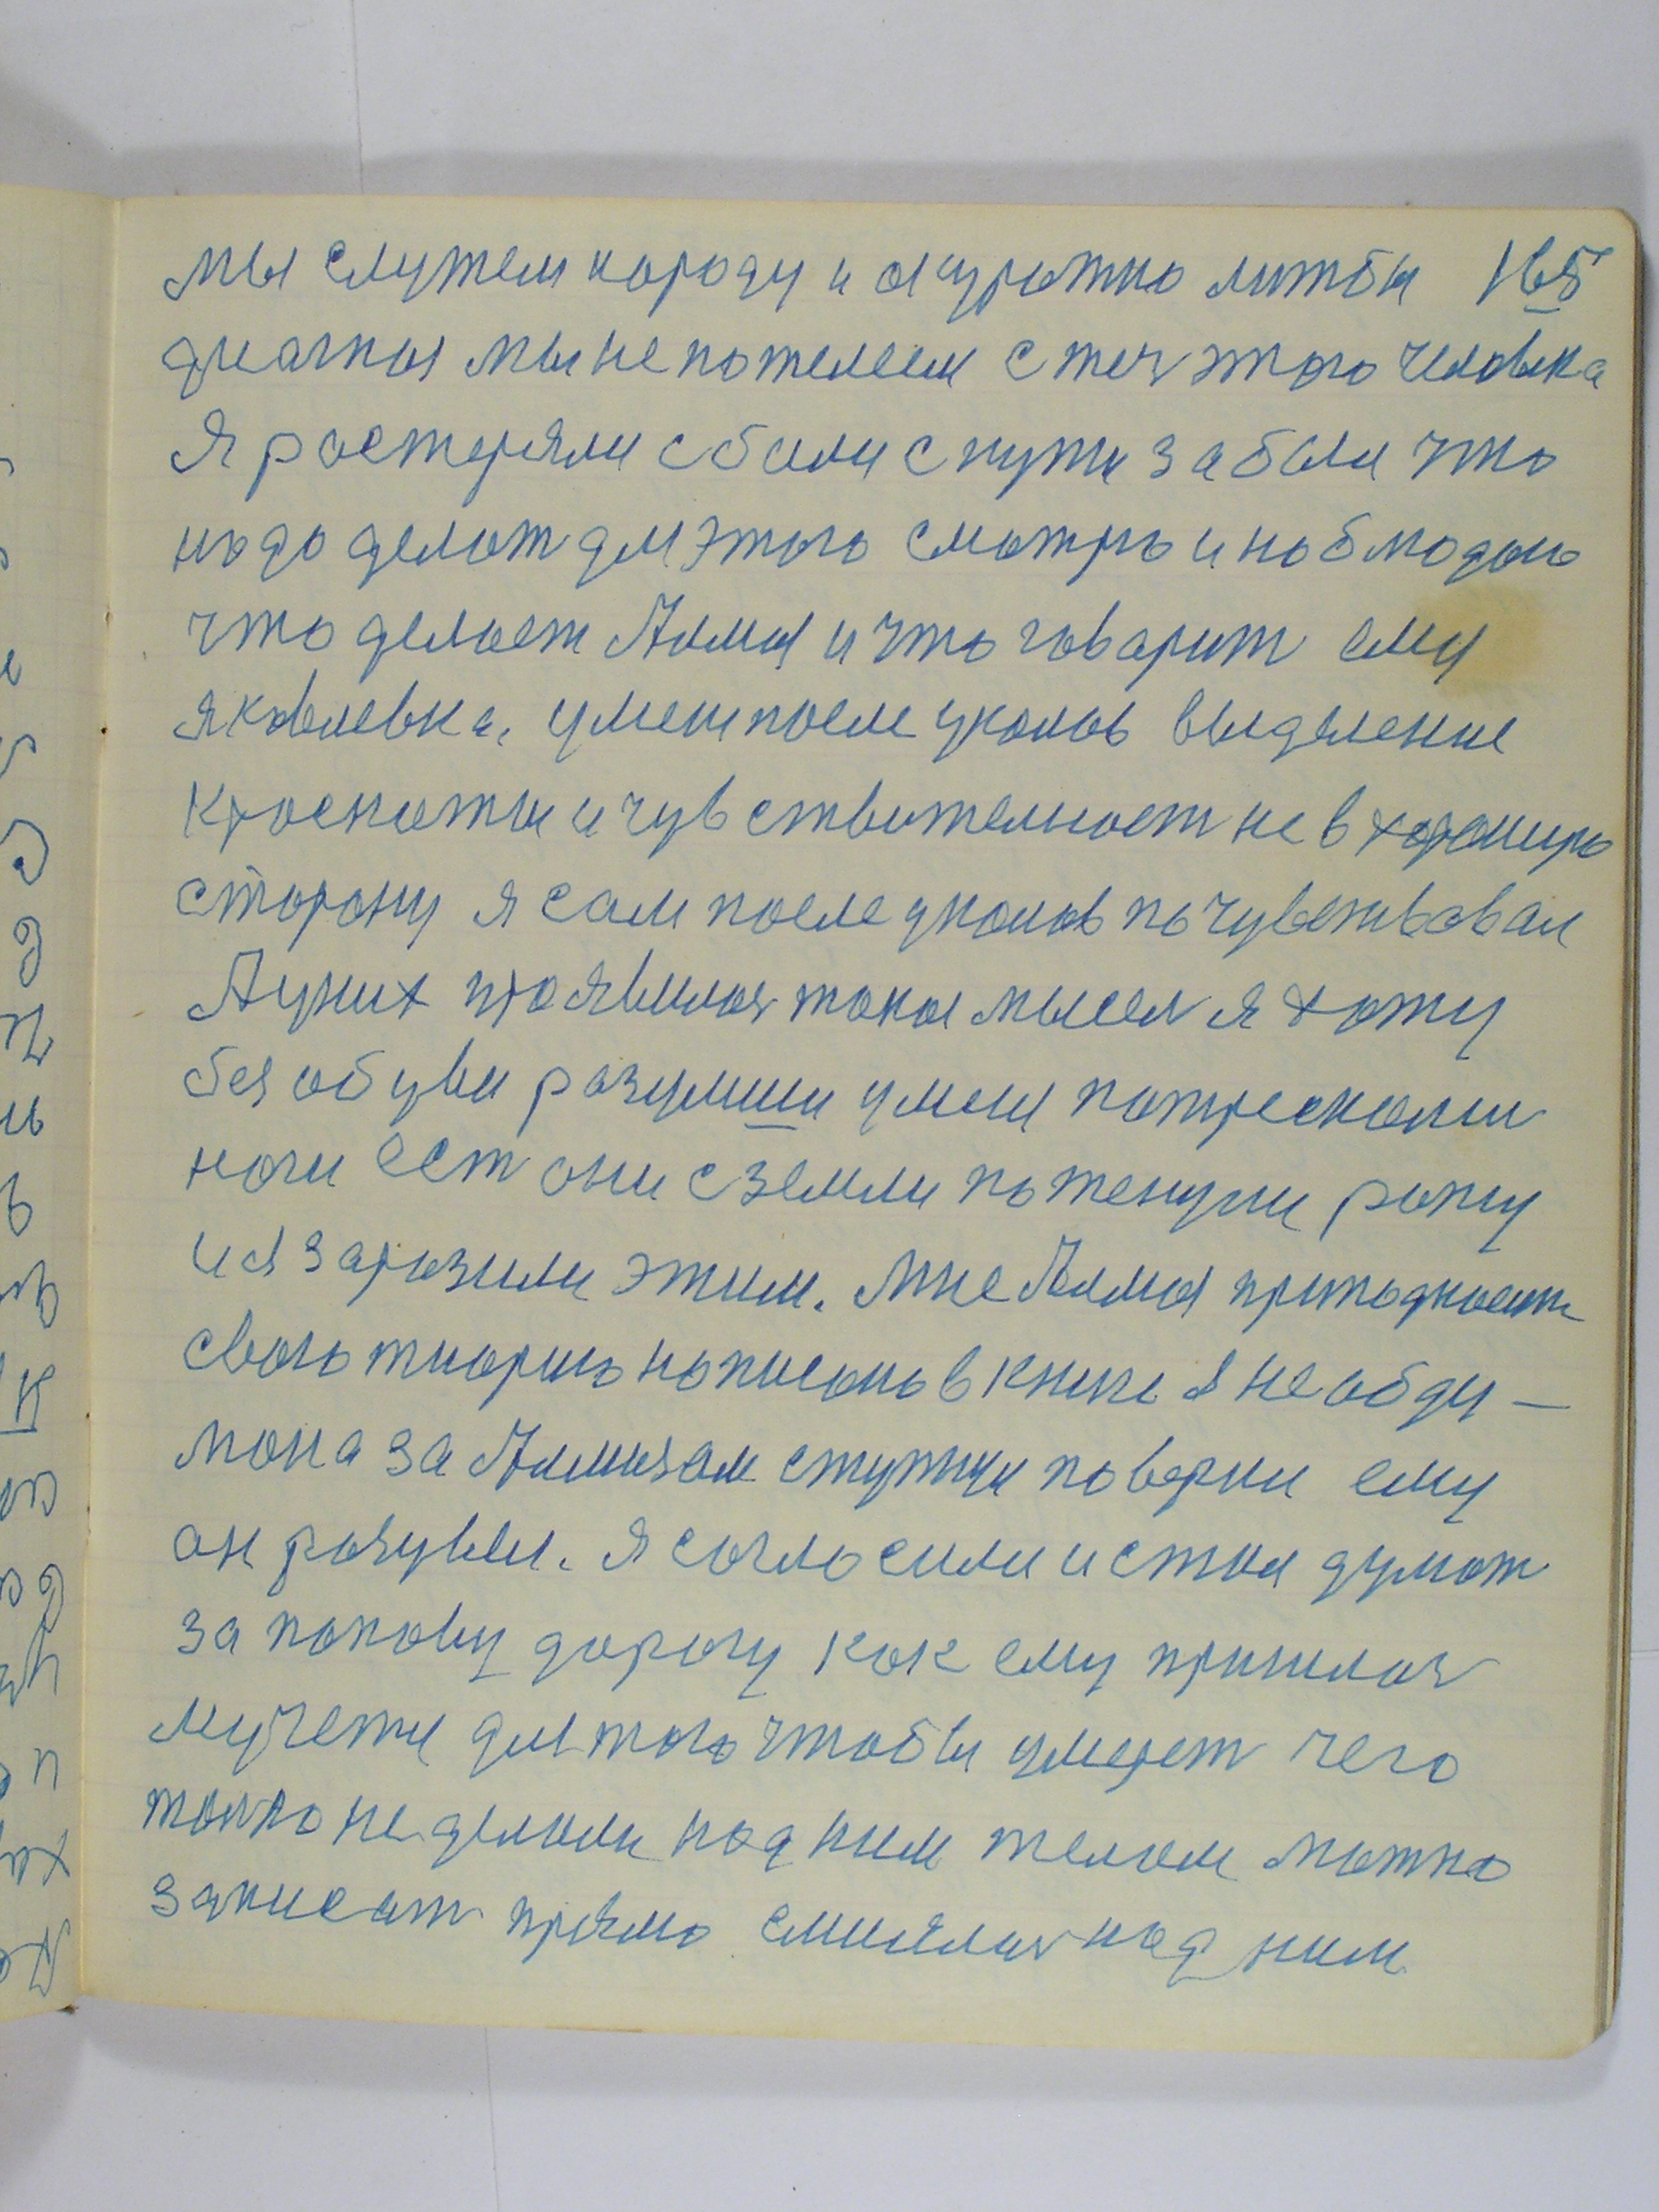 мы служем народу и акуратно литбы 165
диагноз мы не пожелеем стер этого человека
Я ростеряли сбили с пути забыли что
надо делат для этого смотрю и наблюдаю
что делает Алма и что говарит ему
яковлевка, у меня после уколов выделение
красноты и чувствителност не в хорошую
сторону я сам после уколов почувствовал
А у них проявилас такая мысел я хожу
без обуви разумиш у меня потрескалис
ноги ест они с земли потенули рану
и я заразили этим. Мне Алма приподносит
свою тиорию написано в книги я не обду –
мона за Алмазам ступни поверни ему
он разувал. Я согласили и стал думат
за попову дорогу как ему пришлос
мучети для того чтобы умерет чего
толко не делали над ним телом можно
записат прямо смиялис над ним